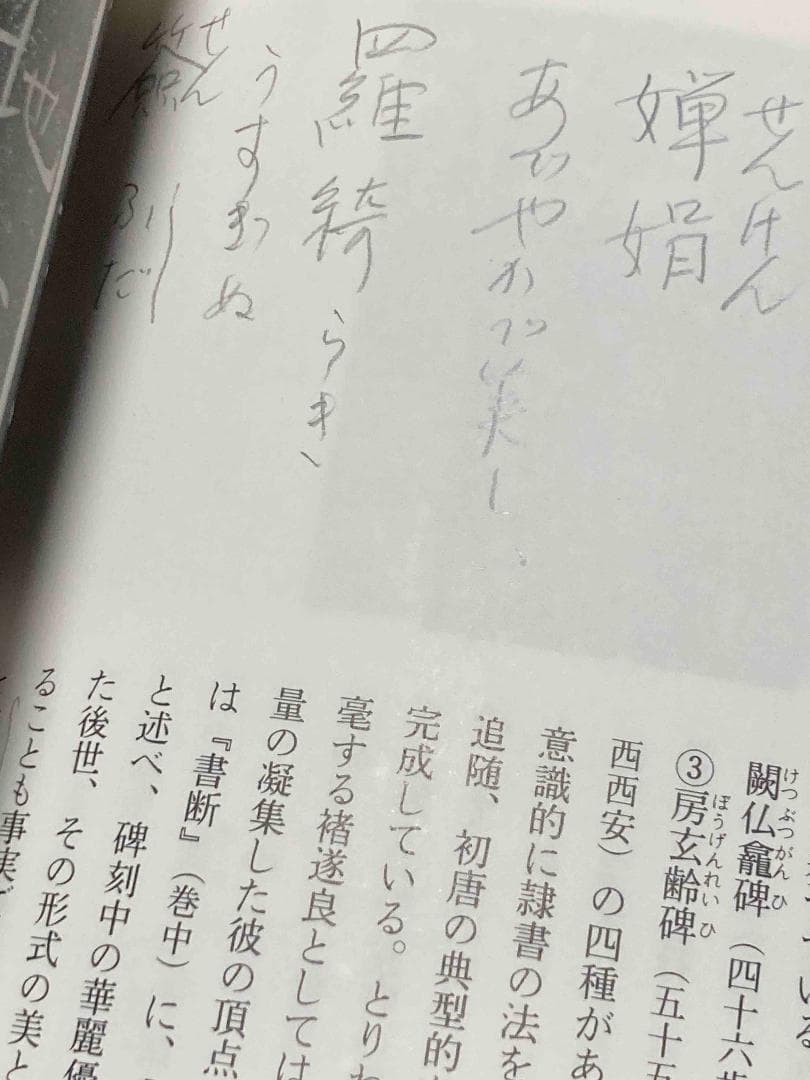 せんけん
嬋娟
あでやかで美し
羅綺 らき
うすぎぬ
せん
ふだ
ている
けつぶつがんひ
闕仏龕碑（四十六歳
ぼうげんれいひ
③房玄齢碑（五十五
西西安）の四種があ
意識的に隷書の法を
追随、初唐の典型的
完成している。とりわ
毫する褚遂良としては
量の凝集した彼の頂点
は『書断』（巻中）に、
と述べ、碑刻中の華麗優
た後世、その形式の美と
ることも事実で